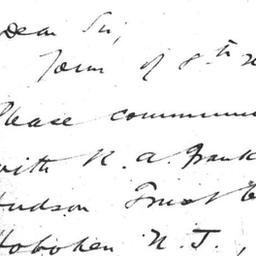 Dear Sir,
of 8th
Please commun
with R. A. Frank
Hudson Trust
Hoboken N. J.,